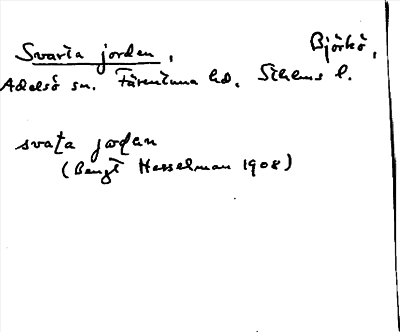 Svarta jorden, Björkö,
Adelsö sn. Färentuna hd. Sthlms l.
svaṭa joḍen
(Bengt Hesselman 1908)